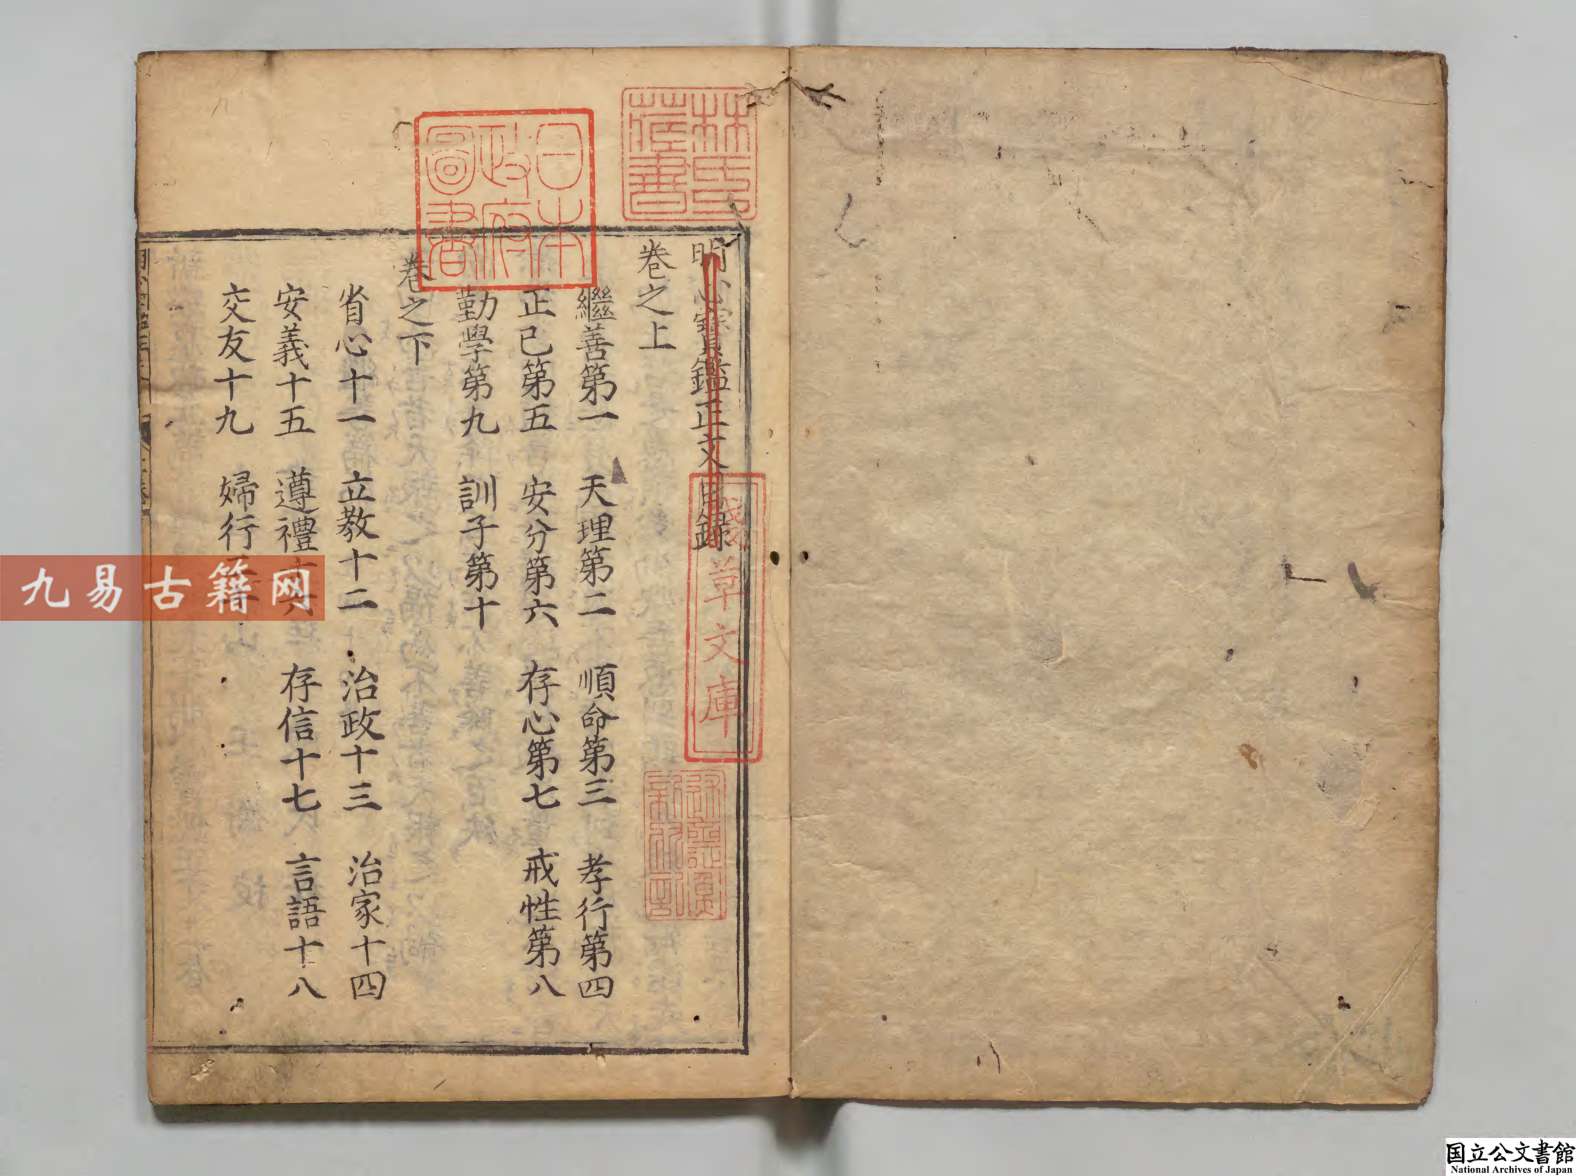 明心寶鑑正文目錄
卷之上
繼善第一 天理第二 順命第三 孝行第四
正己第五 安分第六 存心第七 戒性第八
勤學第九 訓子第十
卷之下
省心十一 立教十二 治政十三 治家十四
安義十五 遵禮十六 存信十七 言語十八
交友十九 婦行
林氏藏書
日本政府圖書
淺草文庫
九易古籍网
国立公文書館
National Archives of Japan